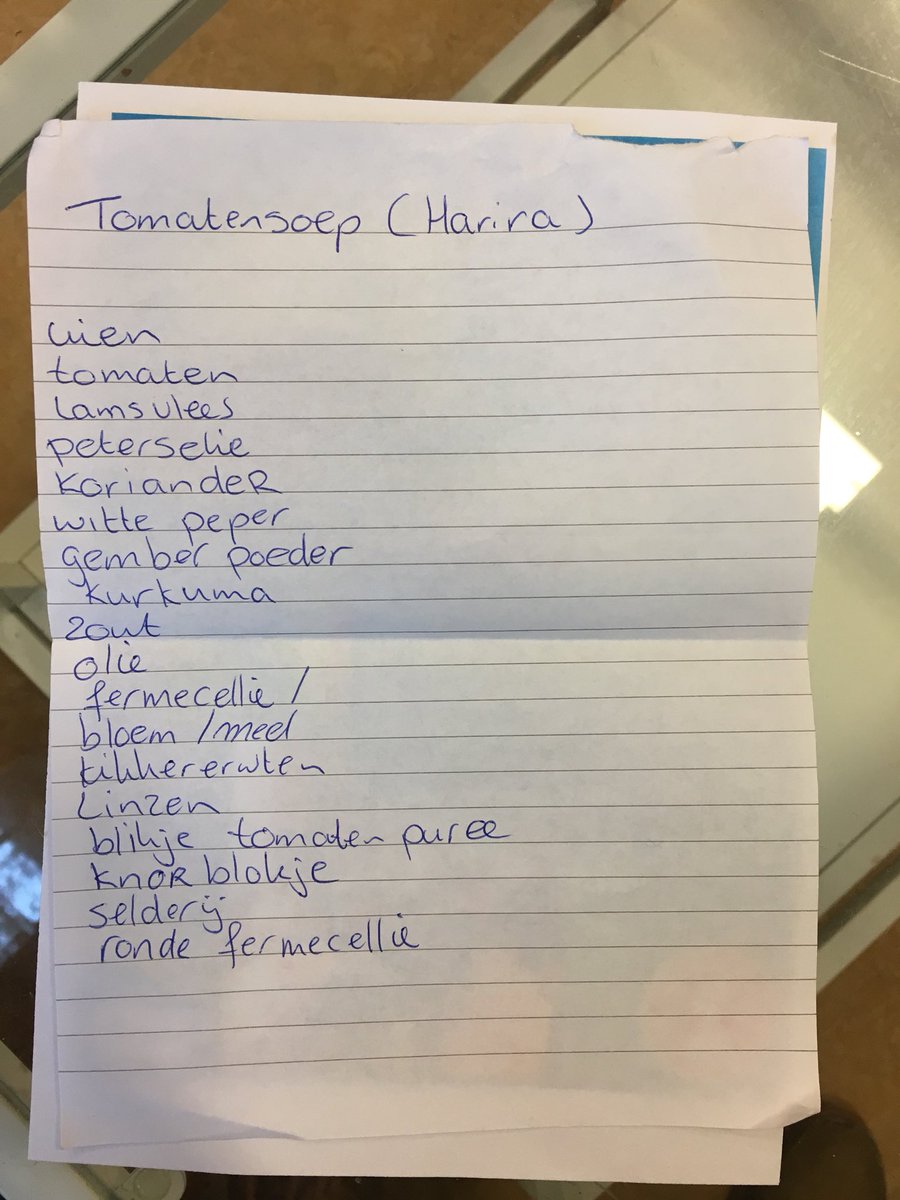 Tomatensoep (Harira)
uien
tomaten
Lamsvlees
peterselie
KoriandeR
witte peper
gember poeder
kurkuma
zout
olie
fermecellie /
bloem / meel
kikkererwten
Linzen
blikje tomaten puree
KnoR blokje
selderij
ronde fermecellie